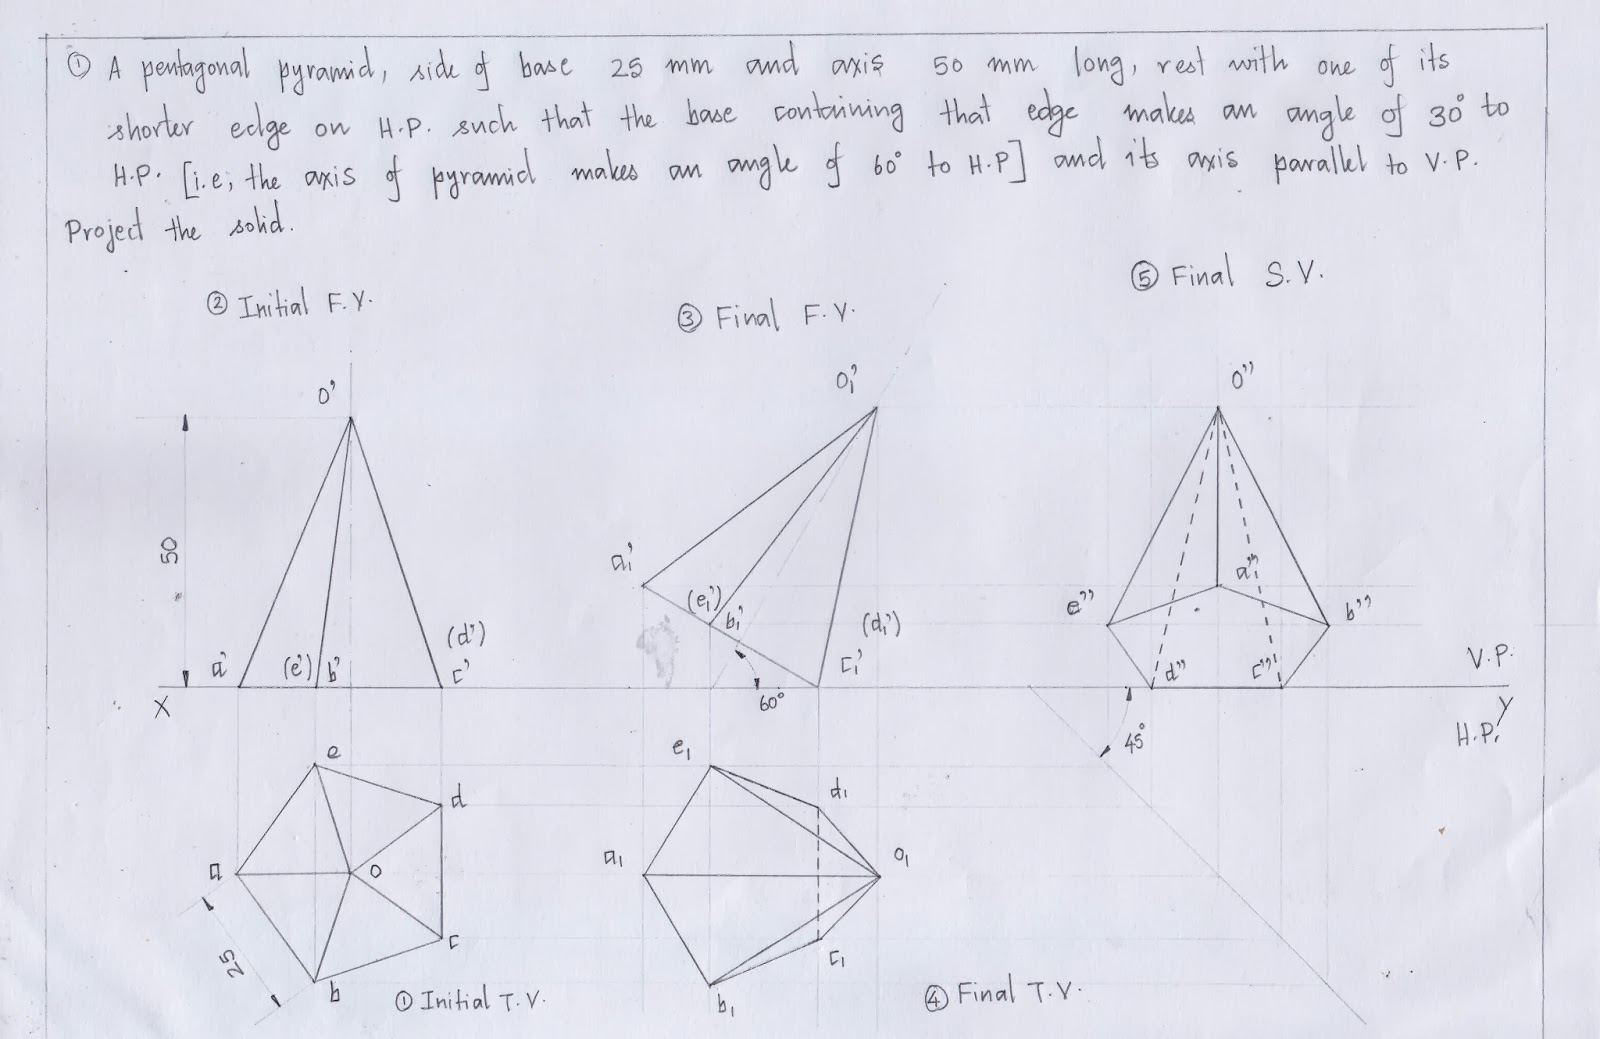 ① A pentagonal pyramid, side of base 25 mm and axis 50 mm long, rest with one of its
shorter edge on H.P. such that the base containing that edge makes an angle of 30° to
H.P. [i.e; the axis of pyramid makes an angle of 60° to H.P] and its axis parallel to V.P.
Project the solid.
⑤ Final S.V.
② Initial F.V.
③ Final F.V.
o'
o₁'
o''
50
a₁'
(e₁')
b₁'
(d₁')
c₁'
a''
e''
b''
(d')
a'
(e')
b'
c'
d''
c''
V.P.
X
60°
Y
H.P.
45°
e
d
a
o
c
b
25
① Initial T.V.
e₁
d₁
a₁
o₁
c₁
b₁
④ Final T.V.